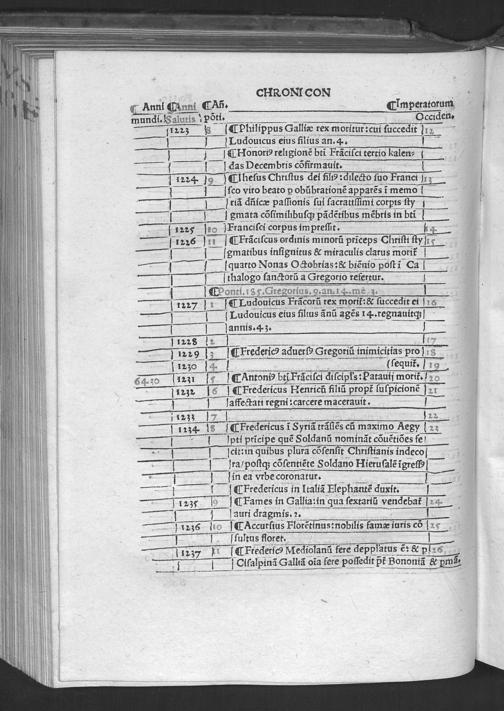 CHRONICON
¶Anni ¶Anni ¶Añ. ¶Imperatorum
mundi. Salutis põti. Occiden.
1223 8 ¶Philippus Galliæ rex moritur: cui succedit 12
Ludouicus eius filius an. 4.
¶Honoriꝰ religionē bti Frācisci tertio kalen⸗
das Decembris cõfirmauit.
1224 9 ¶Ihesus Christus dei filiꝰ: dilecto suo Franci 13
sco viro beato p obūbrationē apparēs ī memo
riā dñicæ passionis sui sacratissimi corpis sty
gmata cõsimilibusq; pādētibus mēbris in bti
1225 10 Francisci corpus impressit. 14
1226 11 ¶Frāciscus ordinis minorū prīceps Christi sty 15
gmatibus insignitus & miraculis clarus morit̄
quarto Nonas Octobrias: & biēnio post ī Ca
thalogo sanctorū a Gregorio refertur.
¶Ponti. 185. Gregorius. 9. an. 14. mē. 3.
1227 1 ¶Ludouicus Frācorū rex morit̄: & succedit ei 16
Ludouicus eius filius ānū agēs 14. regnauitq;
annis. 43.
1228 2 17
1229 3 ¶Fredericꝰ aduersꝰ Gregoriū inimicitias pro 18
1230 4 (sequit̄. 19
6430 1231 5 ¶Antoniꝰ bti Frācisci discipl's: Patauij morit̄. 20
1232 6 ¶Fredericus Henricū filiū propt̄ suspicionē 21
affectati regni: carcere macerauit.
1233 7 22
1234 8 ¶Fredericus ī Syriā trāsiēs cū maximo Aegy 23
pti prīcipe quē Soldanū nomināt cõuētiões fe
cit: in quibus plura cõsensit Christianis indeco
ra/postq; cõsentiēte Soldano Hierusalē īgressꝰ
in ea vrbe coronatur.
¶Fredericus in Italiā Elephantē duxit.
1235 9 ¶Fames in Gallia: in qua sextariū vendebat̄ 24
auri dragmis. 2.
1236 10 ¶Accursius Florētinus: nobilis famæ iuris cõ 25
sultus floret.
1237 11 ¶Fredericꝰ Mediolanū fere depplatus ē: & p 26
Cisalpinā Galliā oīa fere possedit pt̄ Bononiā & pmā.